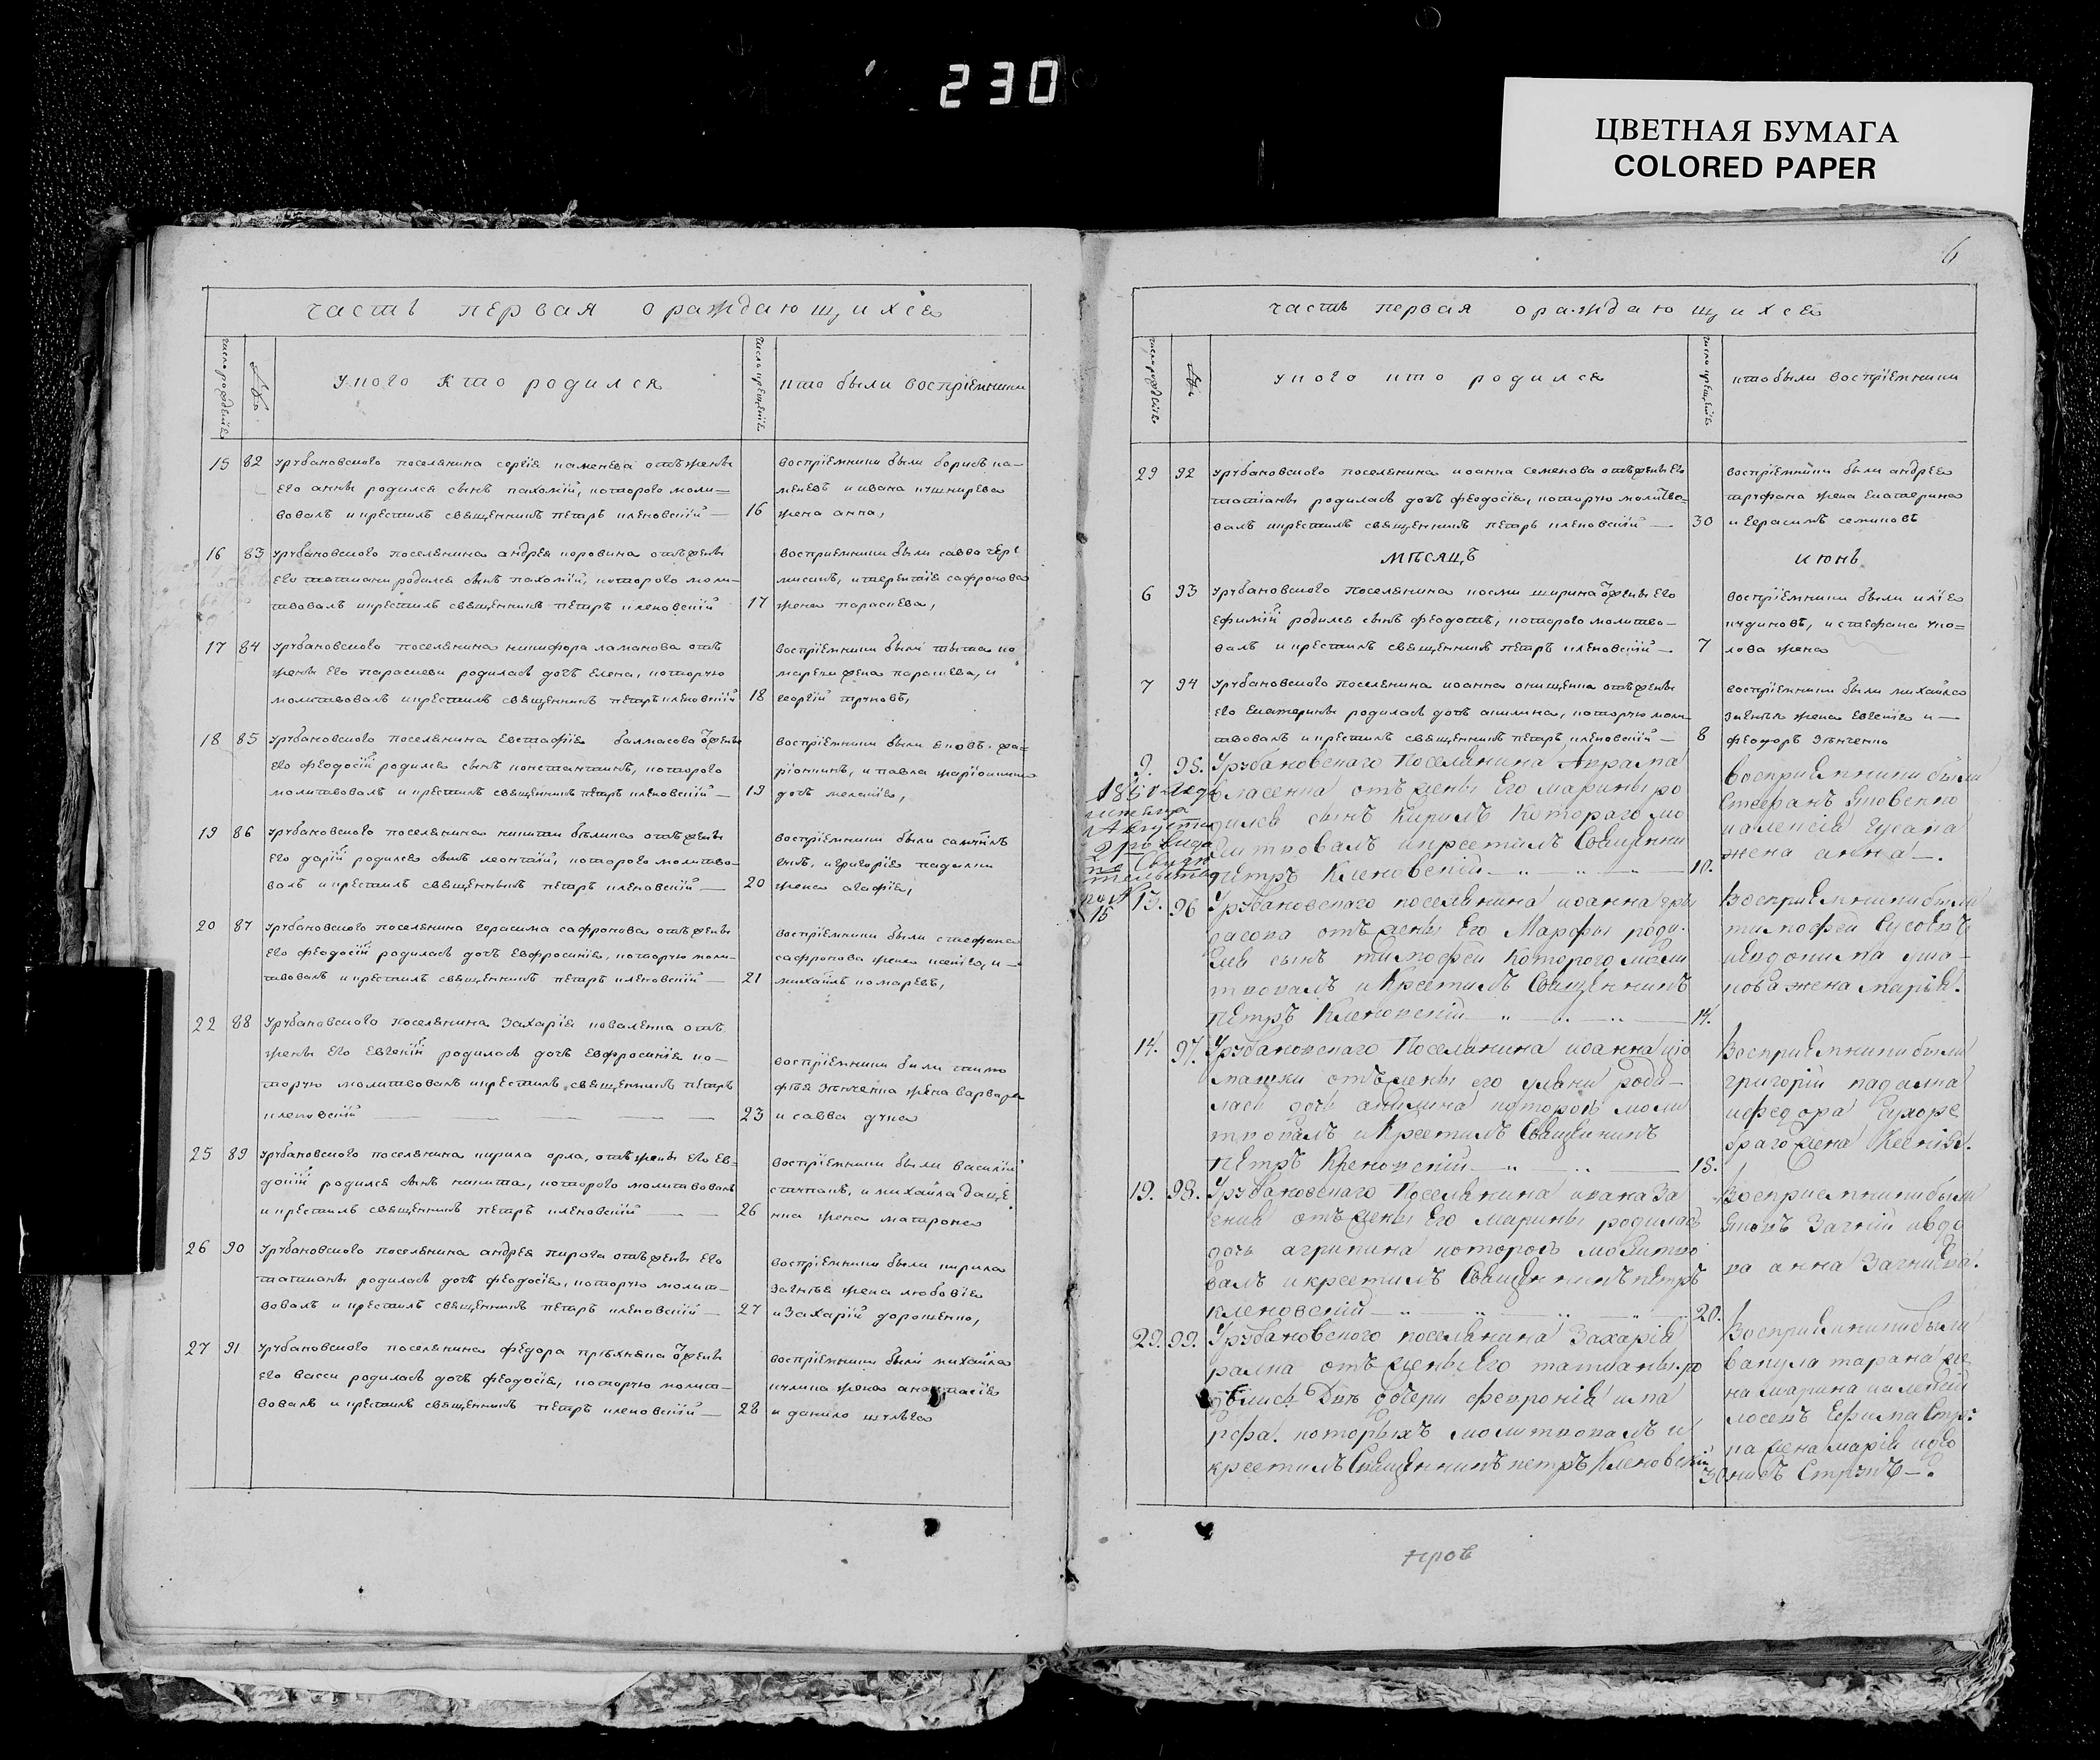 230
ЦВЕТНАЯ БУМАГА
COLORED PAPER
часть первая ораждающихся
число рождения
№
укого кто родился
число крещения
кто были воспріемники
15 82 урубановского поселянина сергія каменева отъ жены
его анны родился сынъ пахомій, которого молит=
вовалъ и крестилъ священникъ петръ кленовскій — 16
воспріемники были борисъ ка–
меневъ и ивана кушнирева
жена анна,
16 83 урубановского поселянина андрея коровина отъ жены
его татиани родился сынъ пахомій, которого моли–
твовалъ и крестилъ священникъ петръ кленовскій 17
воспріемники были савва чер
мисинъ, и терентія сафронова
жена параскева,
17 84 урубановского поселянина никифора ламанова отъ
жены его параскеви родилась дочь елена, которую
молитвовалъ и крестилъ священникъ петръ кленовскій 18
воспріемники были тита ко
марева жена параскева, и
георгій трусовъ,
18 85 урубановского поселянина евстафія балмасова отъ жены
его феодосій родился сынъ константинъ, которого
молитвовалъ и крестилъ священникъ петръ кленовскій — 19
воспріемники были яковъ
и павла
дочь меланія,
19 86 урубановского поселянина никити бълика отъ жены
его дарій родился сынъ леонтій, которого молитво–
валъ и крестилъ священникъ петръ кленовскій — 20
воспріемники были
и григорія падалки
жена агафія,
20 87 урубановского поселянина герасима сафронова отъ жены
его феодосій родилась дочь евфросинія, которую моли–
твовалъ и крестилъ священникъ петръ кленовскій — 21
воспріемники были стефана
сафронова жена ксенія, и –
михаилъ комаревъ,
22 88 урубановского поселянина захарія коваленка отъ
жены его евгеній родилась дочь евфросинія ко–
торую молитвовалъ и крестилъ священникъ петръ
кленовскій — 23
воспріемники были тимо
фъя зънченка жена варвара
и савва дука
25 89 урубановского поселянина кирила орла, отъ жены его ев–
докій родился сынъ никита, которого молитвовалъ
и крестилъ священникъ петръ кленовскій — 26
воспріемники были василій
ступакъ, и михайла даще
нка жена матрона
26 90 урубановского поселянина андрея пирога отъ жены его
татианы родилась дочь феодосія, которую молит–
вовалъ и крестилъ священникъ петръ кленовскій — 27
воспріемники были кирила
загнія жена любовія
и захарій дорошенко,
27 91 урубановского поселянина федора пръхкяна отъ жены
его васси родилась дочь феодосія, которую молит–
вовалъ и крестилъ священникъ петръ кленовскій — 28
воспріемники были михайла
кулика жена анастасія
и данило шулъга
6
часть первая ораждающихся
число рождения
№
укого кто родился
число крещения
кто были воспріемники
29 92 урубановского поселянина иоанна семенова отъ жены его
татіаны родилась дочь феодосія, которую молитво–
валъ и крестилъ священникъ петръ кленовскій — 30
воспріемники были андрея
труфана жена екатерина
и герасимъ семиновъ
мъсяцъ июнь
6 93 урубановского поселянина косми ширина отъ жены его
ефимій родился сынъ феодотъ, которого молитво–
валъ и крестилъ священникъ петръ кленовскій — 7
воспріемники были илія
кудиновъ, и стефана уко=
лова жена
7 94 урубановского поселянина иоанна онищенка отъ жены
его екатерины родилась дочь акилина, которую моли–
твовалъ и крестилъ священникъ петръ кленовскій — 8
воспріемники были михайла
жена евгенія и –
феодоръ зънченко
9. 95. Урубановскаго Поселянина Аврама
власенка отъ жены Его Марины ро
дился сынъ Кирилъ Котораго мо
литвовалъ икрестилъ Священникъ
петръ Кленовскій — 10.
воспріемники были
Стефанъ Яковенко
иалексія Гусака
жена анна —.
1851 года
Августа
2
№
15
13. 96 Урубановскаго поселянина иоанна
отъ жены Его Марфы роди–
лся сынъ тимофей Которого моли
твовалъ и Крестилъ Священникъ
петръ Кленовскій — 14.
Воспріемники были
тимофей
уша–
кова жена марія.
14. 97. Урубановскаго Поселянина иоанна
отъ жены его роди–
лась дочь акилина которою моли
твовалъ и Крестилъ Священникъ
петръ Кленовскій — 15.
Воспріемники были
григорій падалка
ифедора
жена Ксенія.
19. 98. Урубановскаго Поселянина ивана За
гнія отъ жены Его Марины родилась
дочь агрипина которою молитво
валъ икрестилъ Священникъ петръ
кленовскій — 20.
Воспріемники были
Яковъ Загній
ва анна Загніева.
29. 99. Урубановскаго поселянина Захарія
отъ жены Его татианы ро
дились Двъ дочери февронія има
рфа. которыхъ молитвовалъ и
крестилъ Священникъ петръ Кленовскій 30
Воспріемники были
вакула тарана же
на марина иалексій
лосевъ Ефима Стру
ка жена марія
Струкъ —.